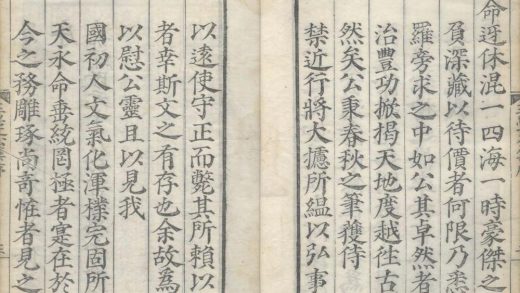 命迓休混一四海一時豪傑之
負深藏以待價者何限乃悉
羅旁求之中如公其卓然者
治豐功掀揭天地度越徃古
然矣公秉春秋之筆獲待
禁近行將大攄所緼以弘事
以遠使守正而斃其所賴以
者幸斯文之有存也余故為
以慰公靈且以見我
國初人文氣化渾樸完固所
天永命垂統罔極者寔在於
今之務雕琢尚奇恠者見之